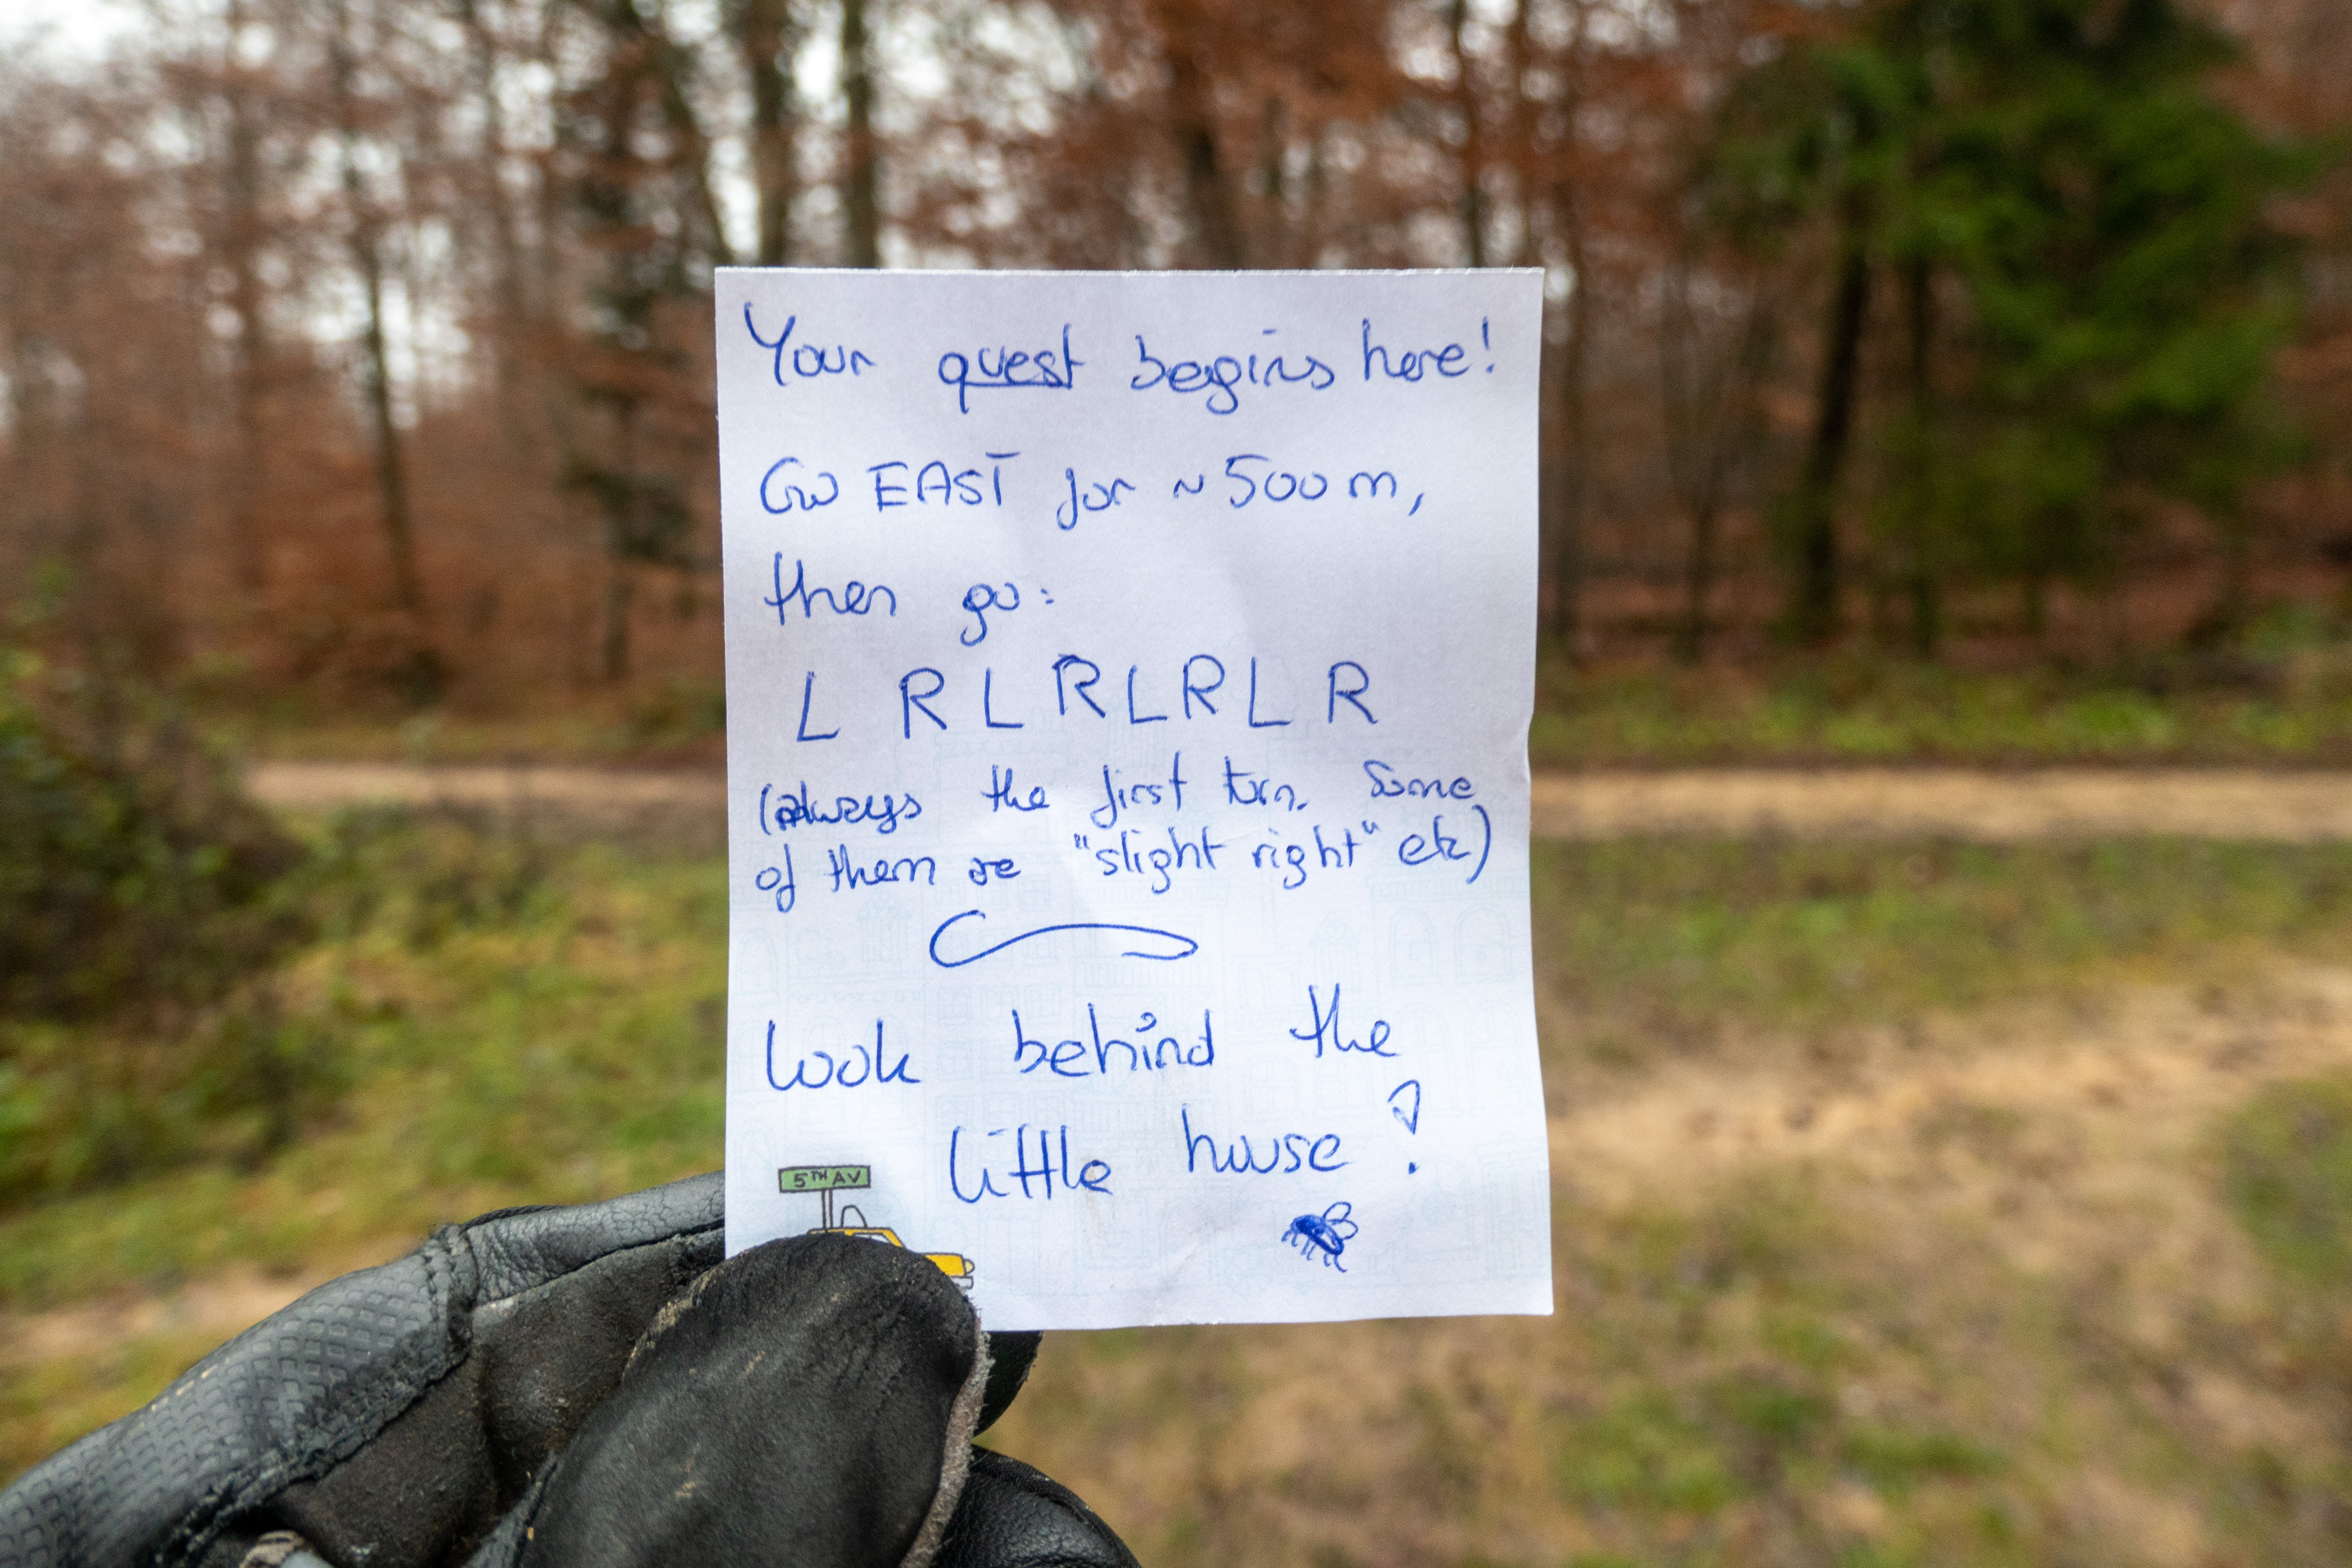 Your quest begins here!
Go EAST for ~500m,
then go:
L R L R L R L R
(always the first turn. Some
of them are "slight right" etc)
look behind the
little house!
5TH AV